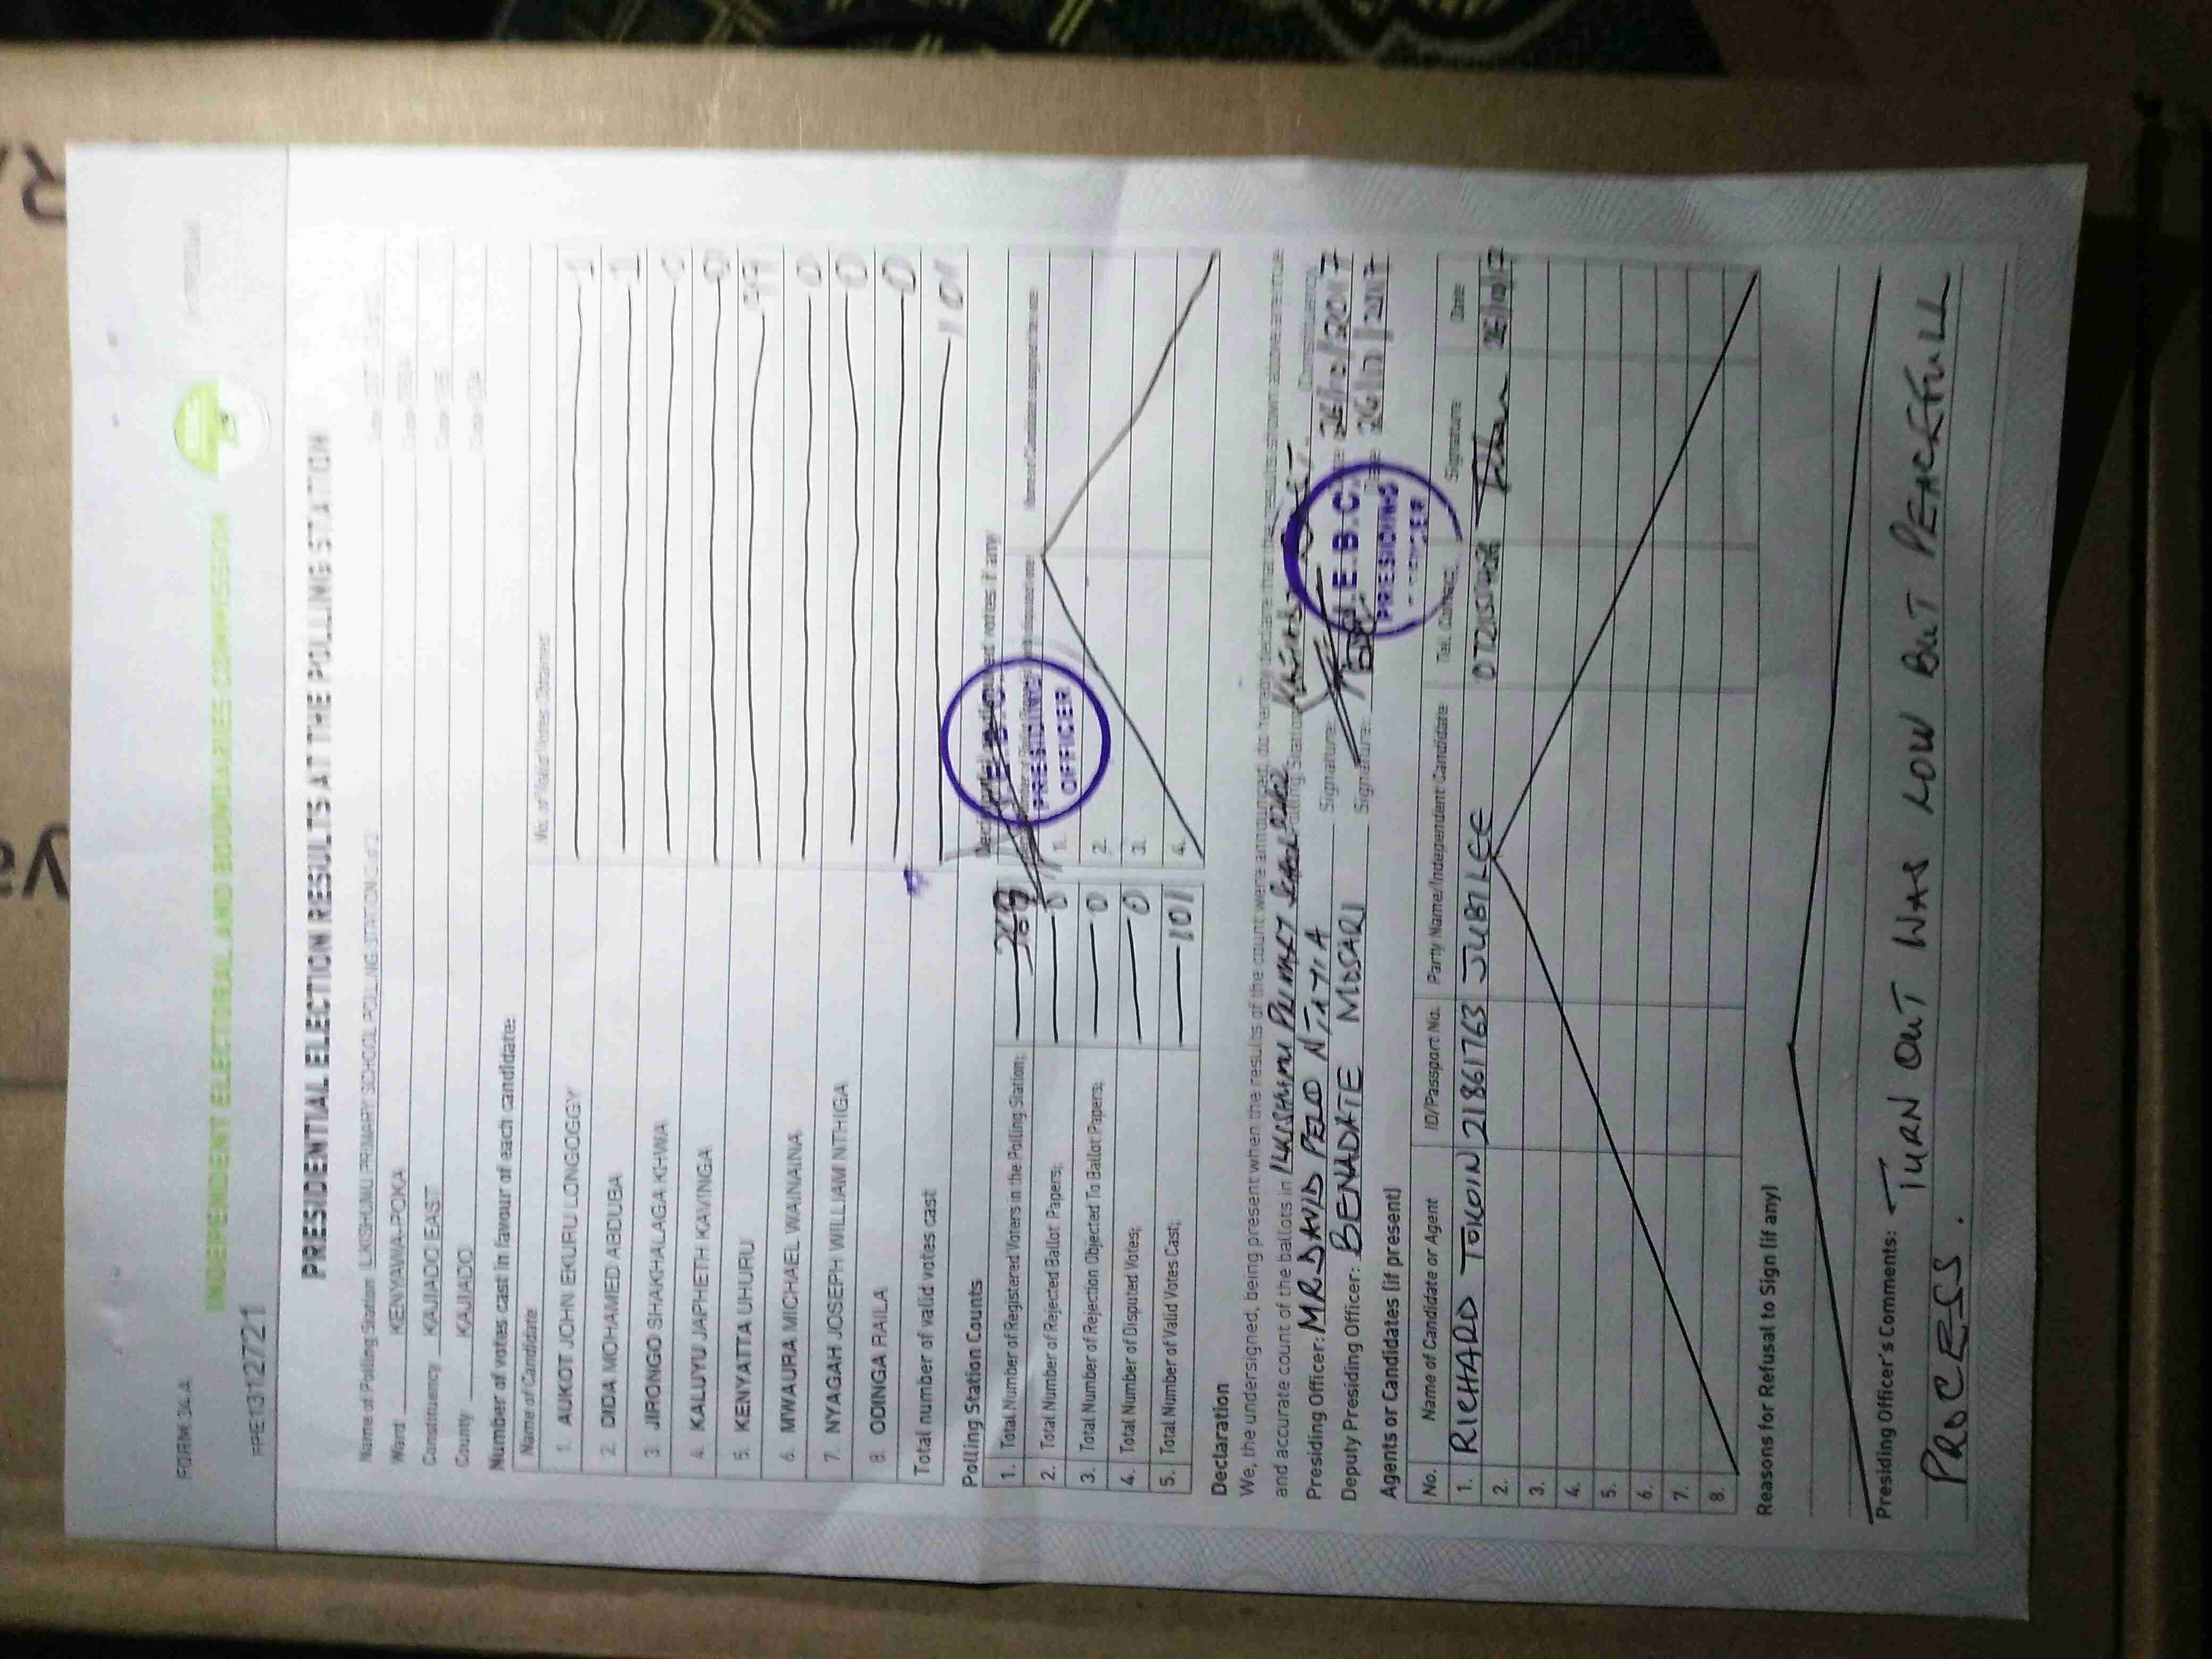 FORM 34A
INDEPENDENT ELECTORAL AND BOUNDARIES COMMISSION
PRESIDENTIAL ELECTION RESULTS AT THE POLLING STATION
Name of Polling Station ILKISHUMU PRIMARY SCHOOL POLLING STATION 2 of 2
Ward KENYAWA-POKA
Constituency KAJIADO EAST
County KAJIADO
Number of votes cast in favour of each candidate:
Name of Candidate No. of Valid Votes Obtained
1. AUKOT JOHN EKURU LONGOGGY 1
2. DIDA MOHAMED ABDUBA 1
3. JIRONGO SHAKHALAGA KHWA 0
4. KALUYU JAPHETH KAVINGA 0
5. KENYATTA UHURU 99
6. MWAURA MICHAEL WAINAINA 0
7. NYAGAH JOSEPH WILLIAM NTHIGA 0
8. ODINGA RAILA 0
Total number of valid votes cast 101
Polling Station Counts
1. Total Number of Registered Voters in the Polling Station;
2. Total Number of Rejected Ballot Papers; 0
3. Total Number of Rejection Objected To Ballot Papers; 0
4. Total Number of Disputed Votes; 0
5. Total Number of Valid Votes Cast; 101
votes if any
1.
2.
3.
4.
PRESIDING
OFFICER
Declaration
We, the undersigned, being present when the results of the count were announced, do hereby declare that the results shown above are true
and accurate count of the ballots in Polling Station Constituency
Presiding Officer: MR. DAVID Signature: 26/10/2017
Deputy Presiding Officer: BENADATE MOSARI Signature: 26/10/2017
I.E.B.C.
PRESIDING
OFFICER
Agents or Candidates (if present)
No. Name of Candidate or Agent ID/Passport No. Party Name/Independent Candidate Tel. Contact Signature Date
1. RICHARD TOKOIN 21861763 JUBILEE 26/10/17
2.
3.
4.
5.
6.
7.
8.
Reasons for Refusal to Sign (if any)
Presiding Officer's Comments: TURN OUT WAS LOW BUT PEACEFULL
PROCESS.